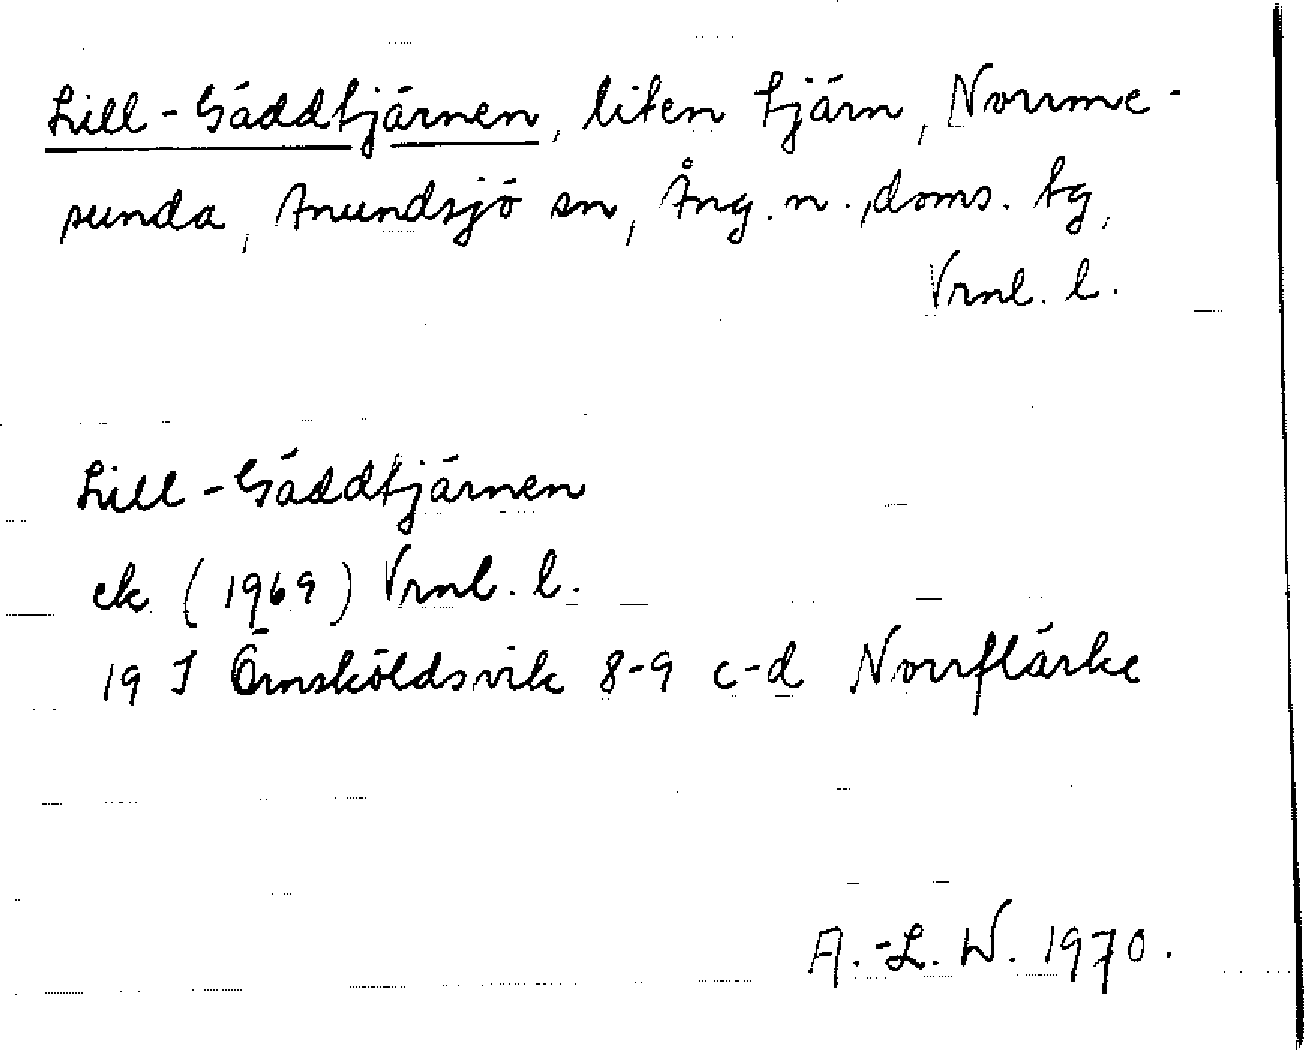 Lill-Gäddtjärnen, liten tjärn, Norrme-
sunda, Anundsjö sn, Ång. n. doms. tg,
Vrnl. l.
Lill-Gäddtjärnen
ek (1969) Vrnl. l.
19 J Örnsköldsvik 8-9 c-d Norrflärke
A.-L. W. 1970.